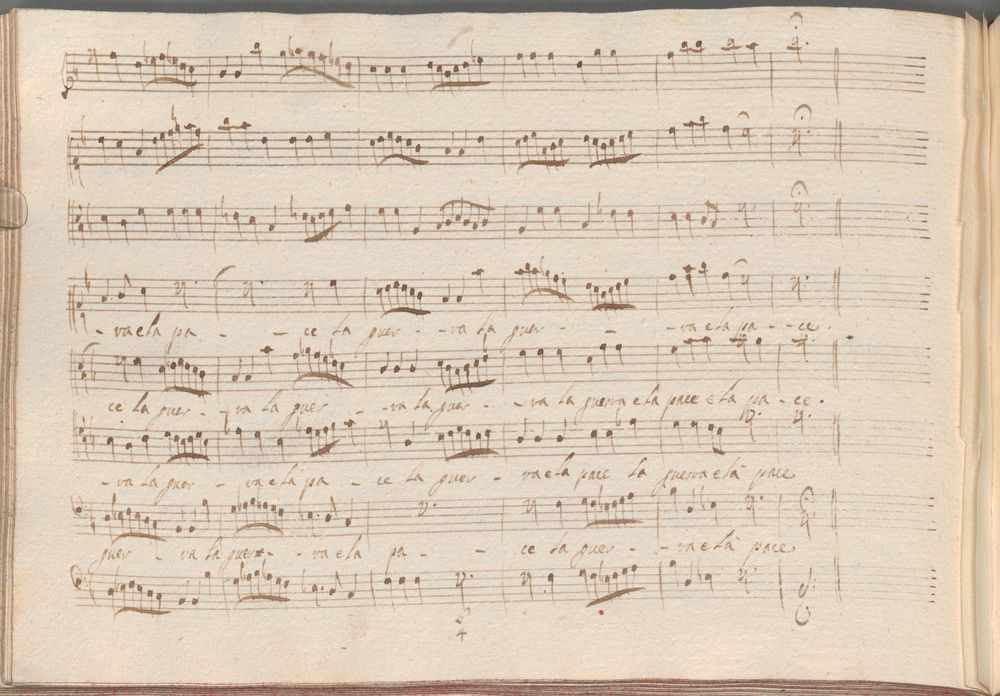 - va e la pa - - ce la guer - - va la guer - - - va e la pa - - ce.
ce la guer - - va la guer - - va la guer - - va la guerra e la pace e la pa - ce.
- va la guer - va e la pa - ce la guer - va e la pace la guerra e la pace
guer - va la guer - - va e la pa - - ce la guer - - va e la pace
4